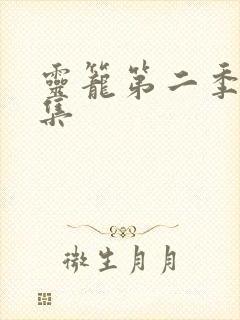 靈籠第二季
集
微生月月